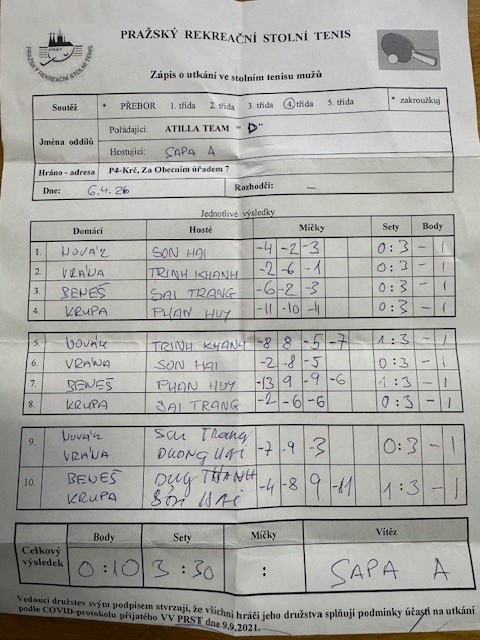 PRAŽSKÝ REKREAČNÍ STOLNÍ TENIS
PRST
PRAŽSKÝ REKREAČNÍ STOLNÍ TENIS
Zápis o utkání ve stolním tenisu mužů
Soutěž * PŘEBOR 1. třída 2. třída 3. třída 4 třída 5. třída * zakroužkuj
Jména oddílů Pořádající: ATILLA TEAM "D"
Hostující: SAPA A
Hráno - adresa P4-Krč, Za Obecním úřadem 7
Dne: 6.4.26 Rozhodčí: –
Jednotlivé výsledky
Domácí Hosté Míčky Sety Body
1. NOVÁK SON HAI -4 -2 -3 0:3 - 1
2. VRÁNA TRINH KHANH -2 -6 -1 0:3 - 1
3. BENEŠ SAI TRANG -6 -2 -3 0:3 - 1
4. KRUPA PHAN HUY -11 -10 -11 0:3 - 1
5. NOVÁK TRINH KHANH -8 8 -5 -7 1:3 - 1
6. VRÁNA SON HAI -2 -8 -5 0:3 - 1
7. BENEŠ PHAN HUY -13 9 -9 -6 1:3 - 1
8. KRUPA SAI TRANG -2 -6 -6 0:3 - 1
9. NOVÁK Sai Trang
VRÁNA DUONG HAI -7 -9 -3 0:3 - 1
10. BENEŠ DUY THANH
KRUPA SƠN HẢI -4 -8 9 -11 1:3 - 1
Celkový výsledek Body Sety Míčky Vítěz
0:10 3:30 : SAPA A
Vedoucí družstev svým podpisem stvrzují, že všichni hráči jeho družstva splňují podmínky účasti na utkání
podle COVID-protokolu přijatého VV PRST dne 9.9.2021.